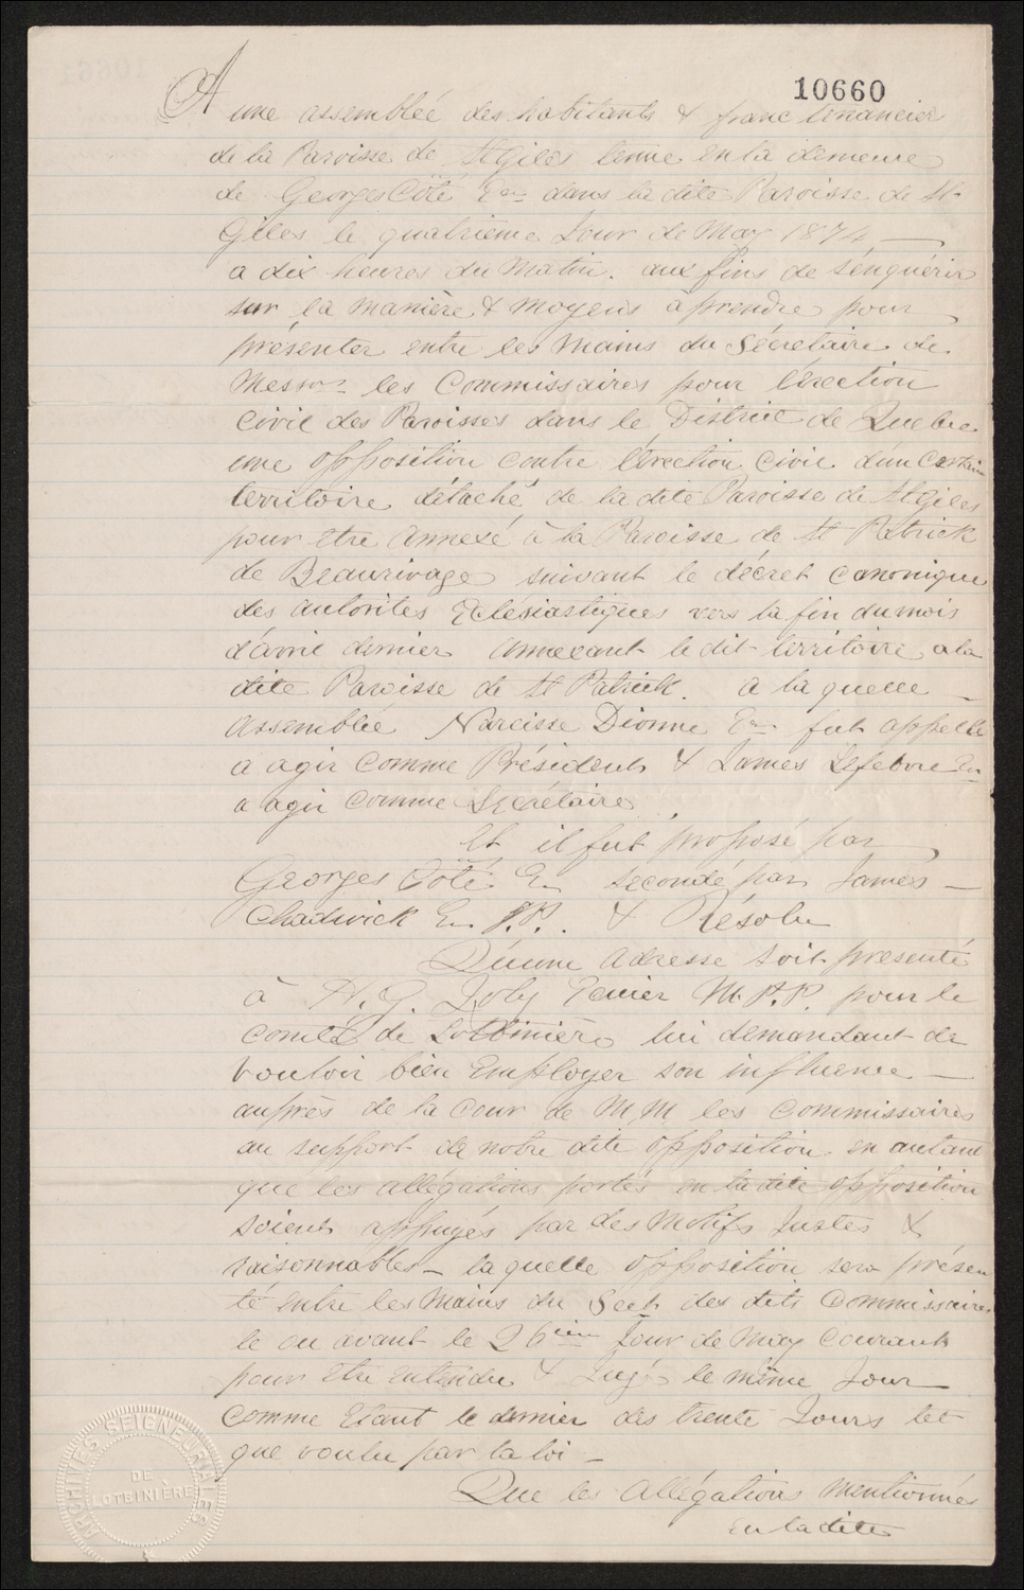 10660
A une assemblée des habitants & franc tenancier
de la Paroisse de St Giles tenue en la demeure
de Georges Côté Ecr dans la dite Paroisse de St
Giles le quatrième Jour de May 1874
a dix heures du Matin. aux fins de s'enquérir
sur la manière & moyens à prendre pour
présenter entre les mains du Sécretaire de
Messrs les Commissaires pour l'érection
Civil des Paroisses dans le District de Quebec
une opposition contre l'érection Civil d'un certain
territoire détaché de la dite Paroisse de St Giles
pour etre Annexé à la Paroisse de St Patrick
de Beaurivage suivant le décret Canonique
des autorites Eclésiastiques vers la fin du mois
d'avril dernier annexant le dit territoire a la
dite Paroisse de St Patrick. a la quelle
assemblée Narcisse Dionne Ecr fut appellé
a agir comme Président & James Lefebvre Ecr
a agir comme Secrétaire
Et il fut proposé par
Georges Côté Ecr secondé par James
Chadwick Ecr J.P. & Résolu
Qu'une adresse soit presenté
à H. G. Joly Ecuier M.P.P. pour le
comté de Lotbinière lui demandant de
vouloir bien Employer son influence
auprès de la Cour de M M les Commissaires
au support de notre dite opposition en autant
que les allégations portés en la dite opposition
soient appuyés par des motifs Justes &
raisonnables – la quelle opposition sera présen
té entre les Mains du Sect des dits Commissaires
le ou avant le 26ième Jour de May Courant
pour etre entendu & Jugé le même Jour
comme Etant le dernier des trente Jours tel
que voulu par la loi –
Que les allégations mentionnés
en la dite
ARCHIVES SEIGNEURIALES
DE
LOTBINIÈRE